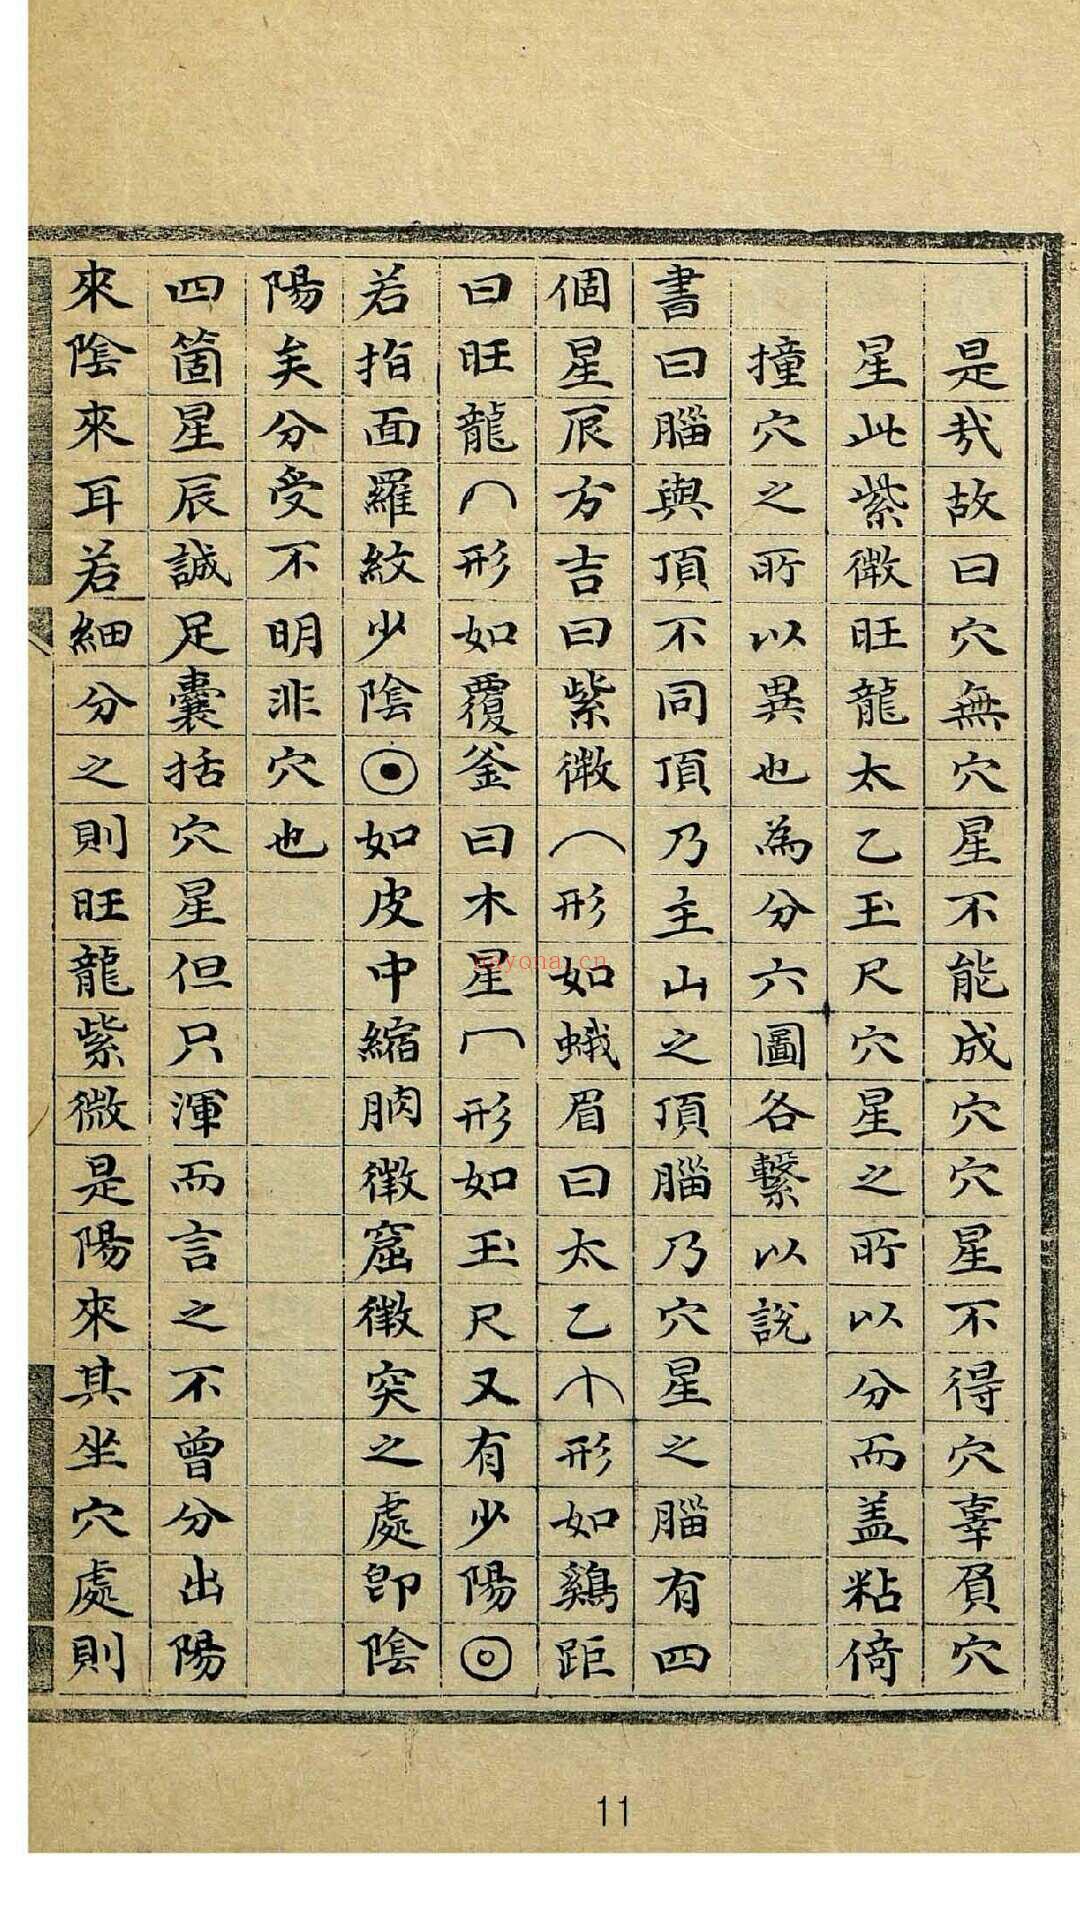 是哉故曰穴無穴星不能成穴穴星不得穴辜負穴
星此紫微旺龍太乙玉尺穴星之所以分而盖粘倚
撞穴之所以異也為分六圖各繫以説
書曰腦與頂不同頂乃主山之頂腦乃穴星之腦有四
個星辰方吉曰紫微形如蛾眉曰太乙形如鷄距
曰旺龍形如覆釜曰木星形如玉尺又有少陽
若指面羅紋少陰如皮中縮朒微窟微突之處即陰
陽矣分受不明非穴也
四箇星辰誠足囊括穴星但只渾而言之不曾分出陽
來陰來耳若細分之則旺龍紫微是陽來其坐穴處則
nayona.cn
11